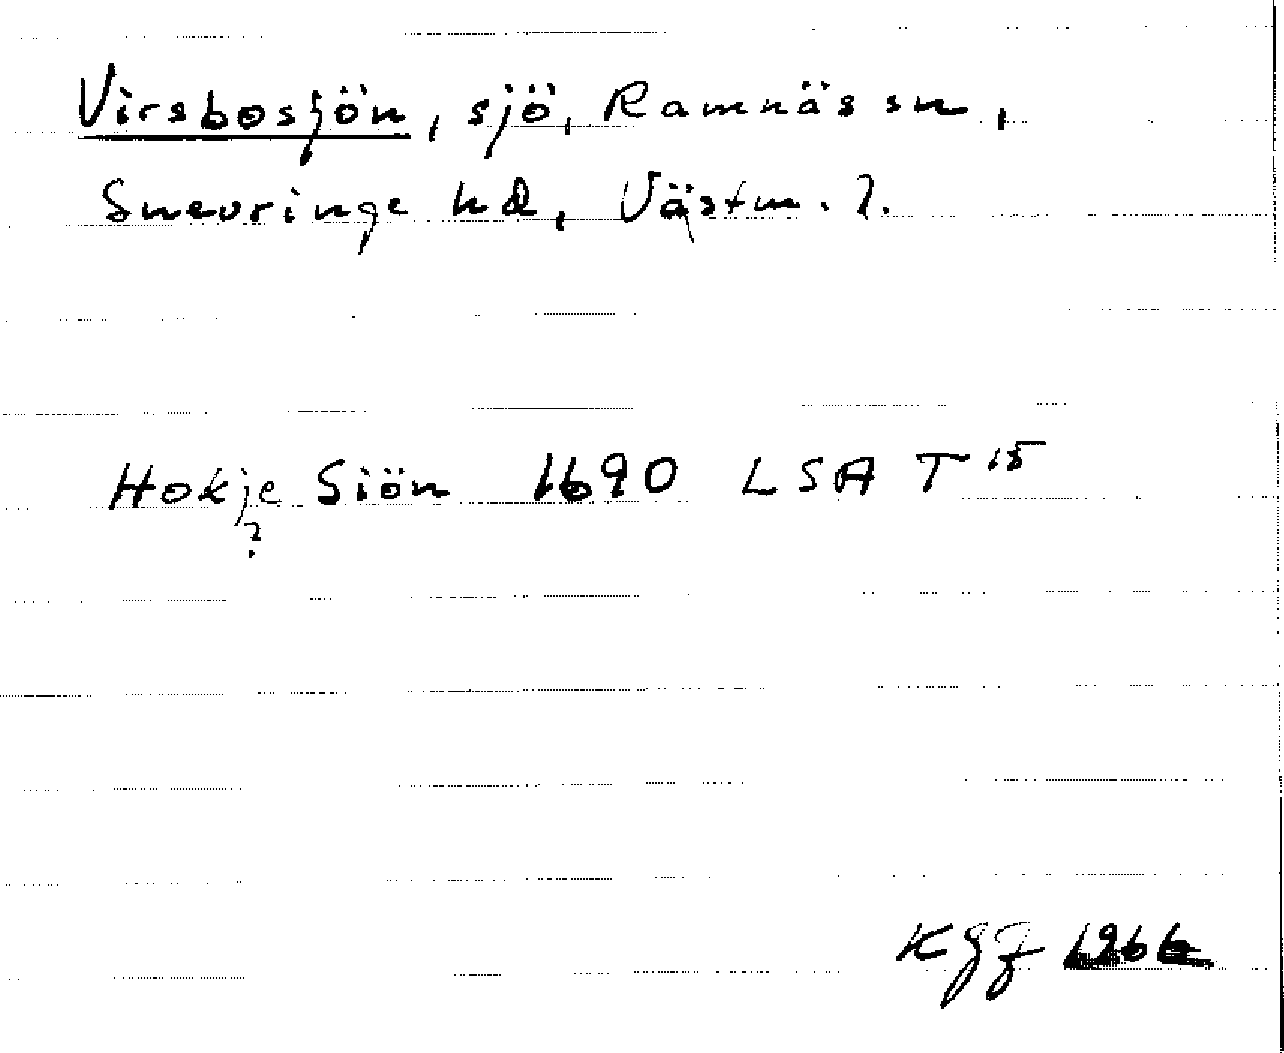 Virsbosjön, sjö, Ramnäs sn,
Snevringe hd, Västm. l.
Hokje Siön 1690 LSA T 15
?
KGJ 1966